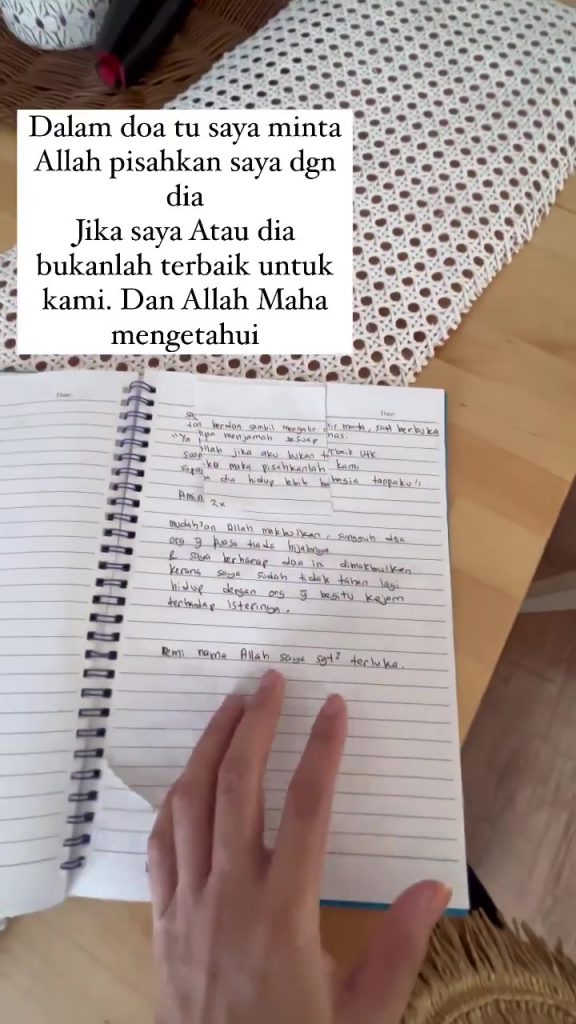 Dalam doa tu saya minta
Allah pisahkan saya dgn
dia
Jika saya Atau dia
bukanlah terbaik untuk
kami. Dan Allah Maha
mengetahui
Date:
Date:
berdoa sambil mengalir, saat berbuka
menjamah sesuap nasi.
jika aku bukan terbaik utk
maka pisahkanlah kami
dia hidup lebih bahagia tanpaku"
Amin 2x
mudah²an Allah makbulkan, sungguh doa
org yg puasa tiada hijabnya.
& saya berharap doa ini dimakbulkan
kerana saya sudah tidak tahan lagi
hidup dengan org yg begitu kejam
terhadap isterinya.
Demi nama Allah saya sgt² terluka.